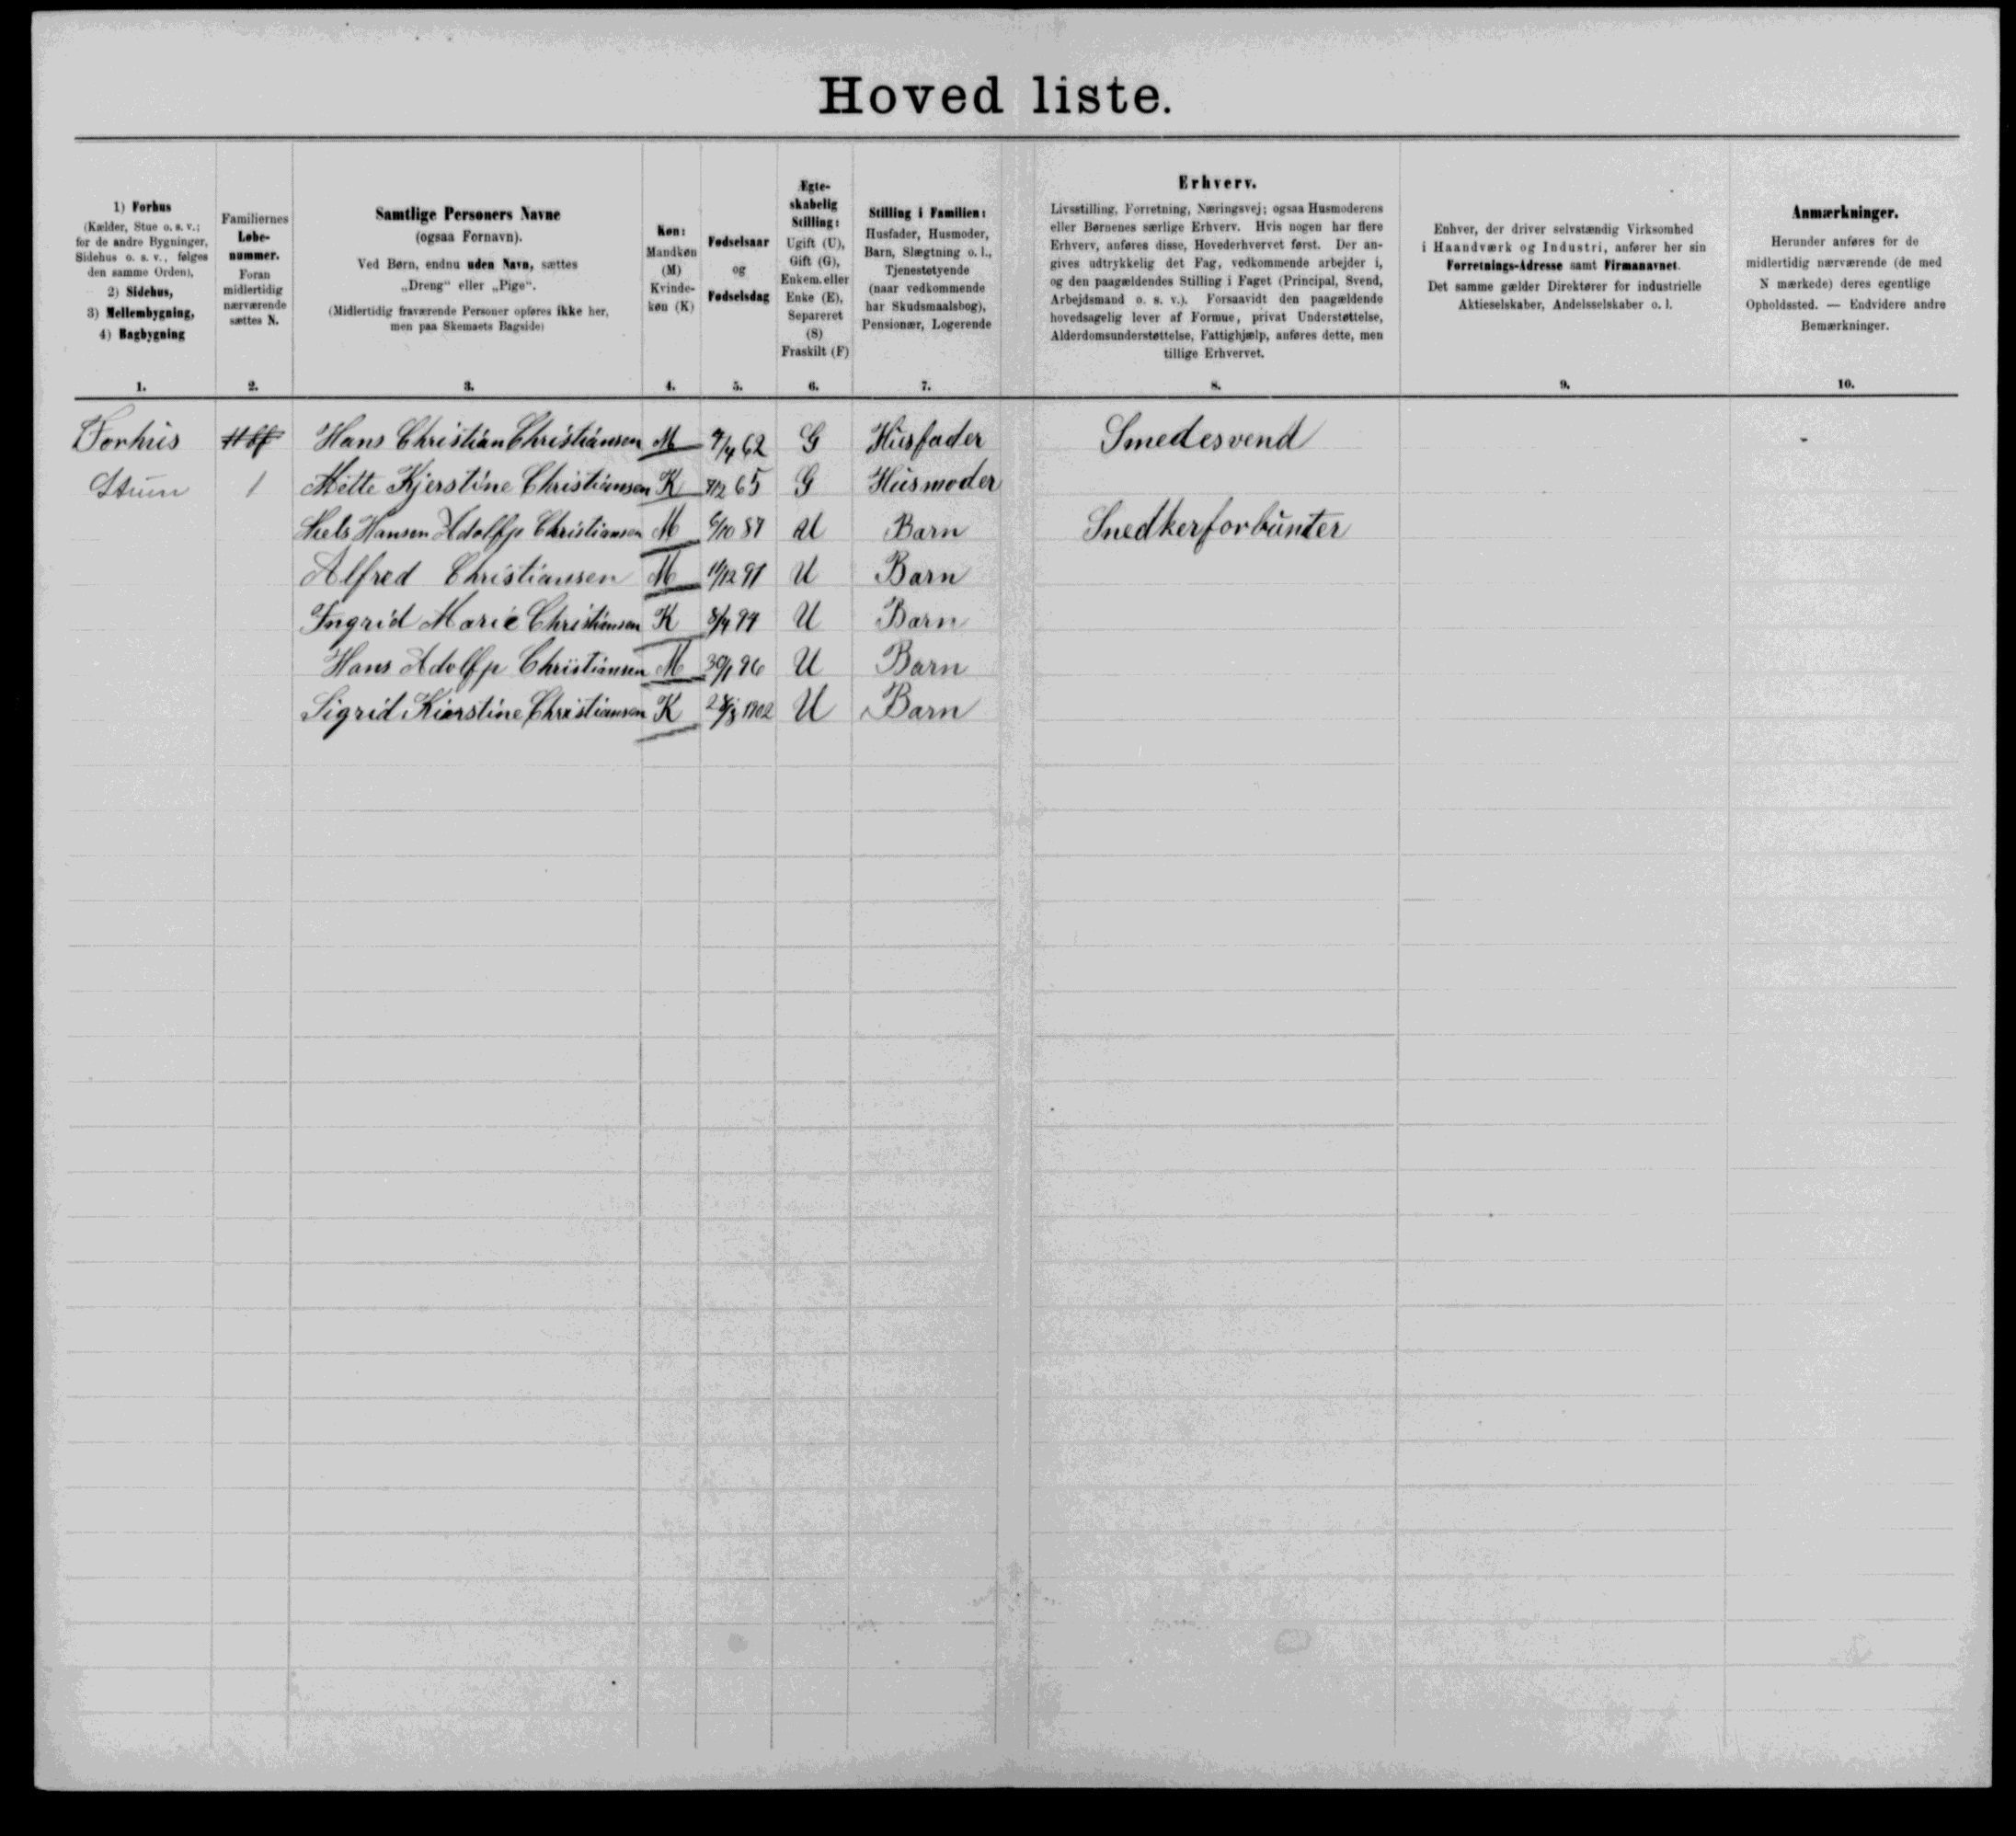 Hoved liste.
1) Forhus
(Kælder, Stue o. s. v.;
for de andre Bygninger,
Sidehus o. s. v., følges
den samme Orden),
2) Sidehus,
3) Mellembygning,
4) Bagbygning
Familiernes
Løbe-
nummer.
Foran
midlertidig
nærværende
sættes N.
Samtlige Personers Navne
(ogsaa Fornavn).
Ved Børn, endnu uden Navn, sættes
„Dreng“ eller „Pige“.
(Midlertidig fraværende Personer opføres ikke her,
men paa Skemaets Bagside)
Køn:
Mandkøn
(M)
Kvinde-
køn (K)
Fødselsaar
og
Fødselsdag
Ægte-
skabelig
Stilling:
Ugift (U),
Gift (G),
Enkem. eller
Enke (E),
Separeret
(S)
Fraskilt (F)
Stilling i Familien:
Husfader, Husmoder,
Barn, Slægtning o. l.,
Tjenestetyende
(naar vedkommende
har Skudsmaalsbog),
Pensionær, Logerende
Erhverv.
Livsstilling, Forretning, Næringsvej; ogsaa Husmoderens
eller Børnenes særlige Erhverv. Hvis nogen har flere
Erhverv, anføres disse, Hovederhvervet først. Der an-
gives udtrykkelig det Fag, vedkommende arbejder i,
og den paagældendes Stilling i Faget (Principal, Svend,
Arbejdsmand o. s. v.). Forsaavidt den paagældende
hovedsagelig lever af Formue, privat Understøttelse,
Alderdomsunderstøttelse, Fattighjælp, anføres dette, men
tillige Erhvervet.
Enhver, der driver selvstændig Virksomhed
i Haandværk og Industri, anfører her sin
Forretnings-Adresse samt Firmanavnet.
Det samme gælder Direktører for industrielle
Aktieselskaber, Andelsselskaber o. l.
Anmærkninger.
Herunder anføres for de
midlertidig nærværende (de med
N mærkede) deres egentlige
Opholdssted. — Endvidere andre
Bemærkninger.
1. 2. 3. 4. 5. 6. 7. 8. 9. 10.
Forhus Hans Christian Christiansen M 4/4 62 G Husfader Smedesvend
Stuen 1 Mette Kjerstine Christiansen K 7/12 65 G Husmoder
Niels Hansen Adolfp Christiansen M 6/10 87 U Barn Snedkerforbunter
Alfred Christiansen M 11/12 91 U Barn
Ingrid Marie Christiansen K 8/4 94 U Barn
Hans Adolfp Christiansen M 30/1 96 U Barn
Sigrid Kierstine Christiansen K 1902 U Barn